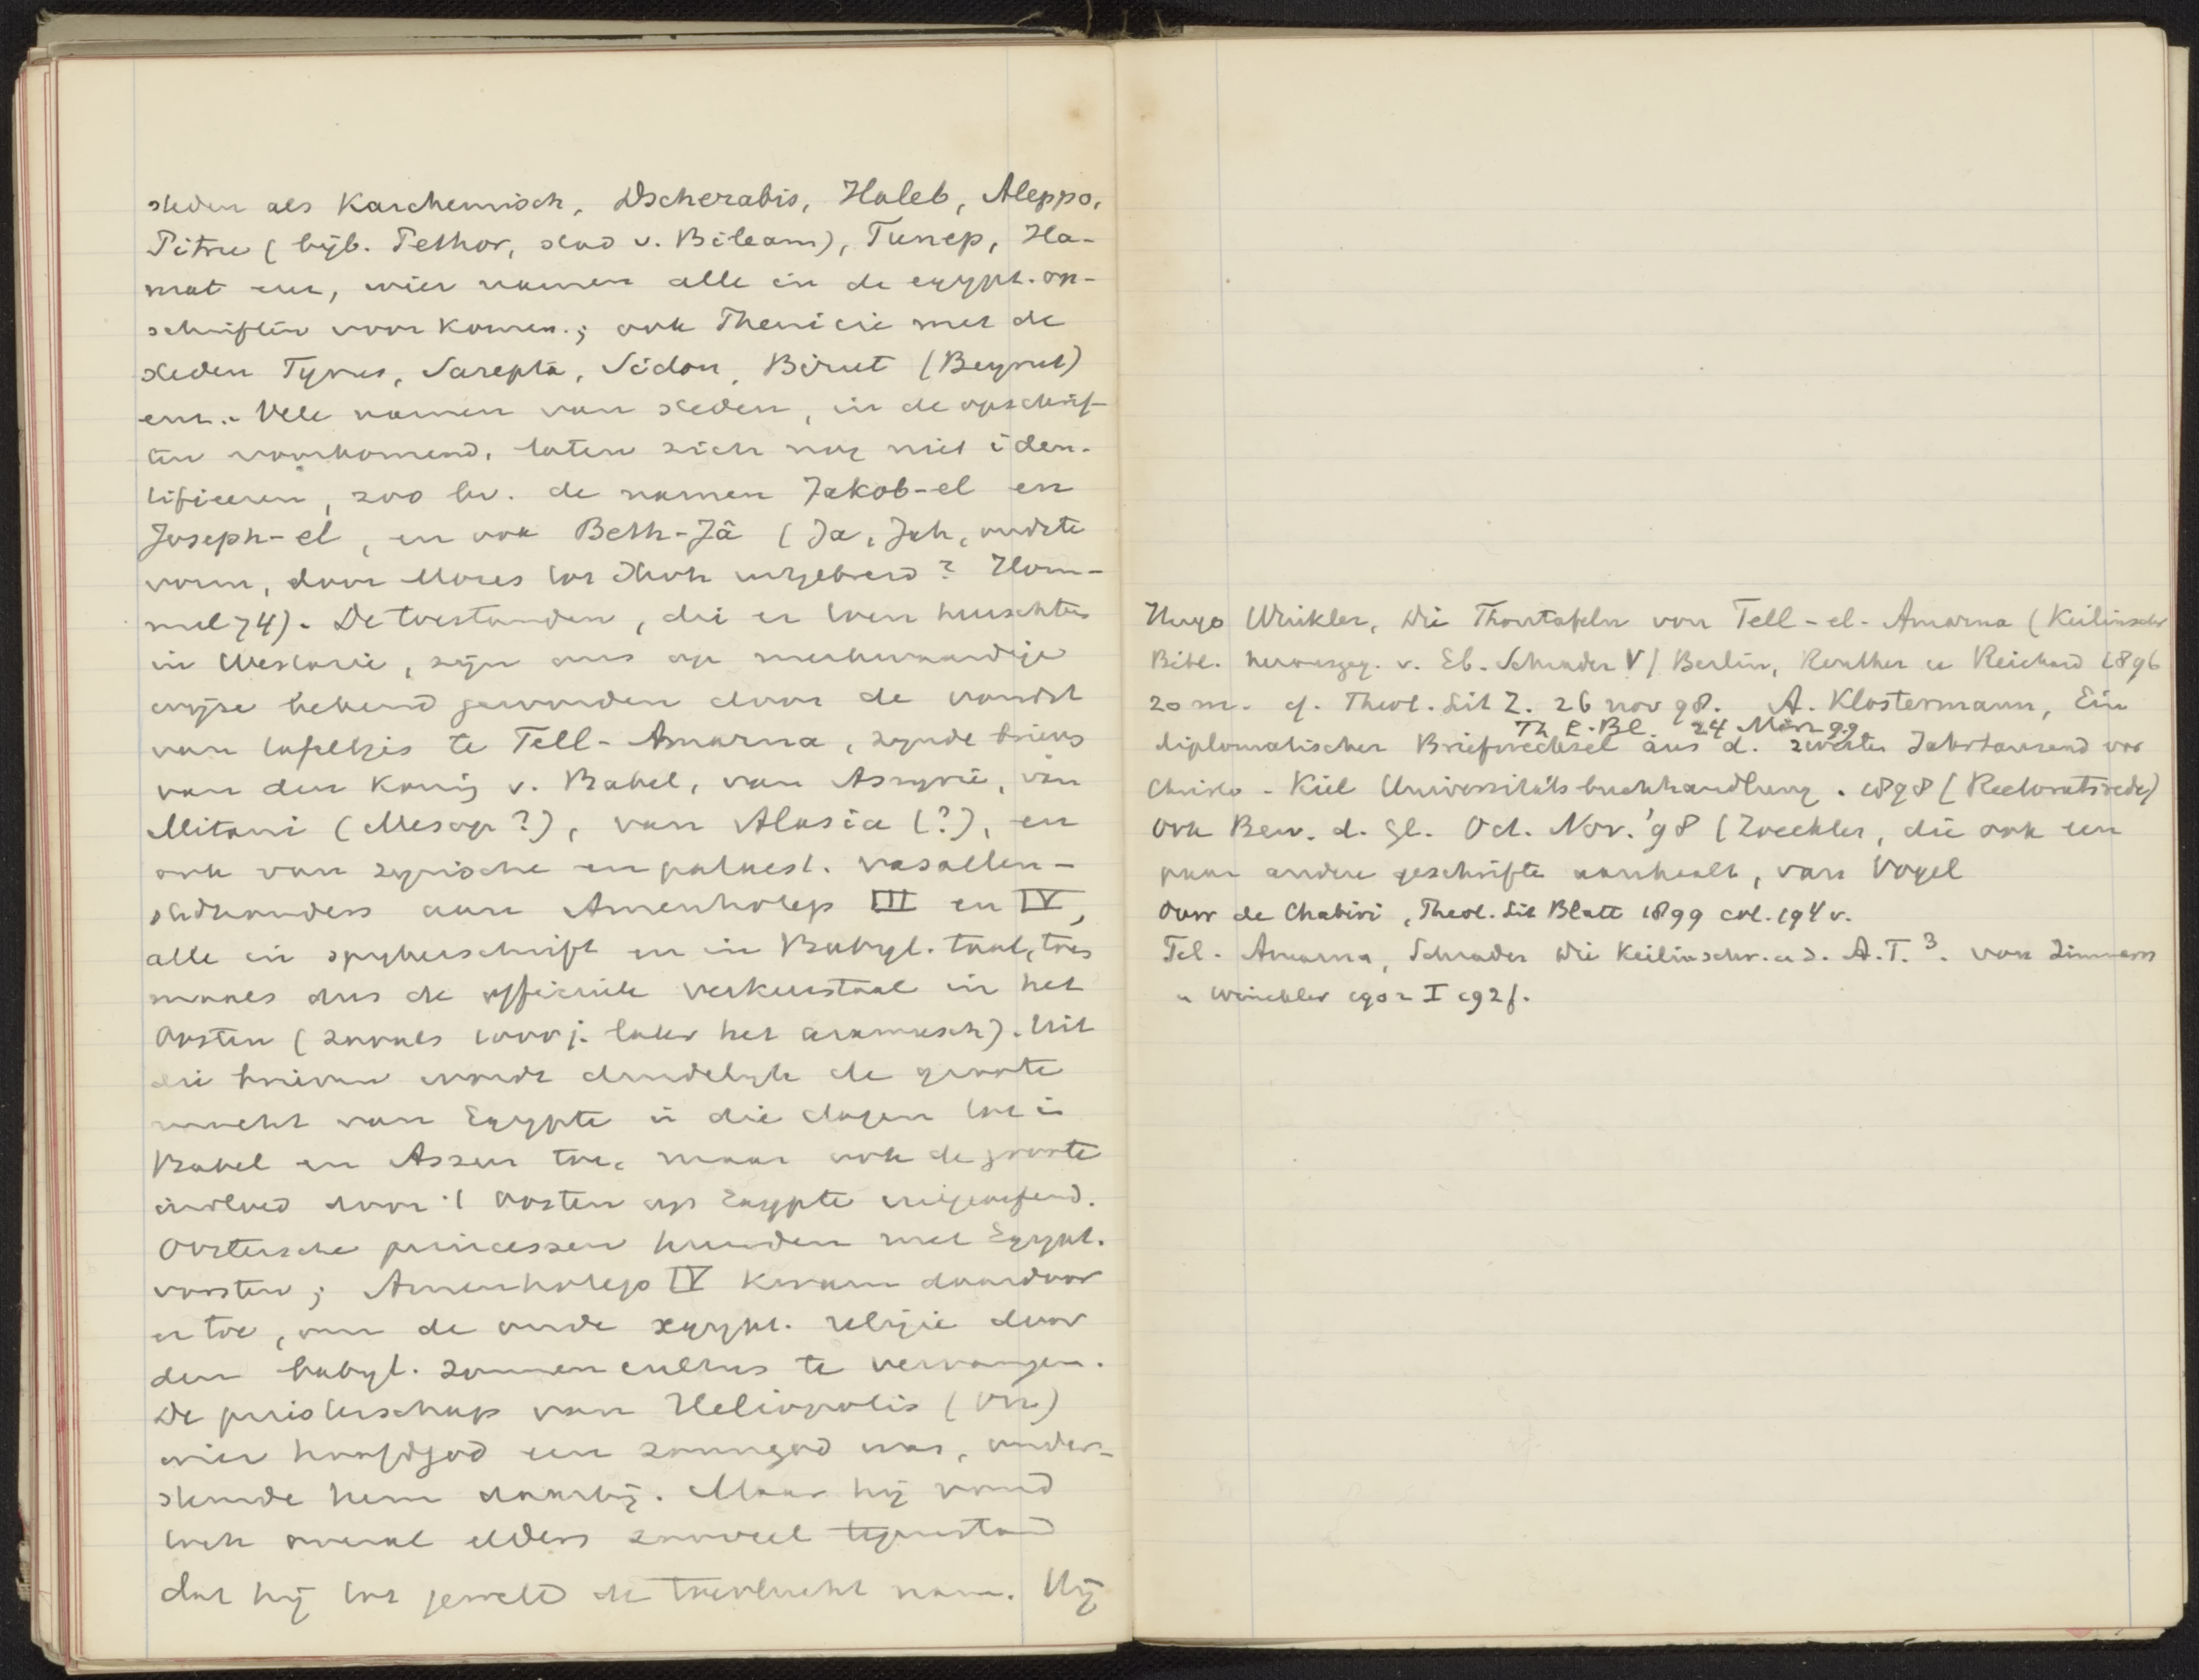 steden als Karchemisch, Dscherabis, Haleb, Aleppo,
Pitru (bijb. Pethor, stad v. Bileam), Tunep, Ha-
mat enz, wier namen alle in de egypt. op-
schriften voorkomen.; ook Phenicie met de
steden Tyrus, Sarepta, Sidon, Birut (Beyrut)
enz. Vele namen van steden, in de opschrif-
ten voorkomend, laten zich nog niet iden-
tificeeren, zoo bv. de namen Jakob-el en
Joseph-el, en ook Beth-Jâ (Ja, Jah, oudste
vorm, door Mozes tot Jhvh uitgebreid? Hom-
mel 74). De toestanden, die er toen heerschten
in Westazie, zijn ons op merkwaardige
wijze bekend geworden door de vondst
van tafeltjes te Tell-Amarna, zijnde brieven
van den koning v. Babel, van Assyrie, van
Mitani (Mesop?), van Alasia (?), en
ook van syrische en palaest. vasallen-
stadhouders aan Amenhotep III en IV,
alle in spijkerschrift en in Babyl. taal, toen
maals dus de officieele verkeerstaal in het
Oosten (zooals 1000 j. later het arameesch). Uit
die brieven wordt duidelijk de groote
macht van Egypte in die dagen tot in
Babel en Assur toe, maar ook de groote
invloed door 't Oosten op Egypte uitgeoefend.
Oostersche princessen huwden met Egypt.
vorsten; Amenhotep IV kwam daardoor
er toe, om de oude egypt. religie door
den babyl. zonnencultus te vervangen.
De priesterschap van Heliopolis (On)
wier hoofdgod een zonnegod was, onder-
steunde hem daarbij. Maar hij vond
toch overal elders zooveel tegenstand
dat hij tot geweld de toevlucht nam. Hij
Hugo Winkler, Die Thontafeln von Tell-el-Amarna (Keilinschr
Bibl. herausgeg. v. Eb. Schrader V) Berlin, Reuther u Reichard 1896
20 m. cf. Theol. Lit Z. 26 nov 98. A. Klostermann, Ein
Th L. Bl. 24 März 99
diplomatischer Briefwechsel aus d. zweiten Jahrtausend vor
Christo - Kiel Universitätsbuchhandlung. 1898 (Rectoratsrede)
Ook Bew. d. Gl. Oct. Nov. '98 (Zoeckler, die ook een
paar andere geschriften aanhaalt, van Vogel
Over de Chabiri, Theol. Lit Blatt 1899 col. 194 v.
Tel-Amarna, Schrader Die Keilinschr. u. d. A.T.³. von Zimmern
u Winckler 1902 I 192f.